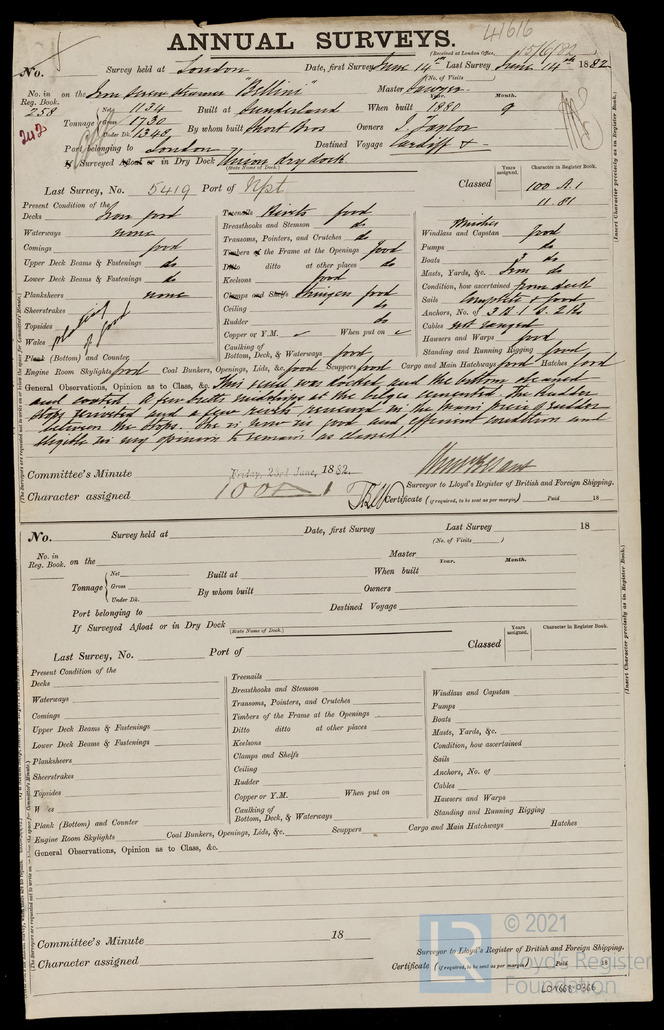 41616
ANNUAL SURVEYS.
(Received at London Office, 15/6/82)
No. Survey held at London Date, first Survey June 14th Last Survey June 14th 1882
(No. of Visits)
No. in Reg. Book. on the Iron Screw Steamer "Bellini" Master Sawyer
258
Year. Month.
Tonnage Net 1134 Built at Sunderland When built 1880 9
Gross 1730
Under Dk. 1340 By whom built Short Bros Owners J. Taylor
242
Port belonging to London Destined Voyage Cardiff &
If Surveyed Afloat or in Dry Dock Union dry dock
(State Name of Dock.)
Last Survey, No. 5419 Port of Npt. Classed
Years assigned. Character in Register Book.
100 A.1
11.81
(Insert Character precisely as in Register Book.)
Present Condition of the
Decks Iron good
Waterways none
Comings good
Upper Deck Beams & Fastenings do
Lower Deck Beams & Fastenings do
Planksheers none
Sheerstrakes
Topsides
Wales
plating good
Plank (Bottom) and Counter
Treenails Rivets good
Breasthooks and Stemson do
Transoms, Pointers, and Crutches do
Timbers of the Frame at the Openings good
Ditto ditto at other places do
Keelsons good
Clamps and Shelfs Stringers good
Ceiling do
Rudder do
Copper or Y.M. When put on
Caulking of Bottom, Deck, & Waterways good
Winches
Windlass and Capstan good
Pumps do
Boats do
Masts, Yards, &c. Iron do
Condition, how ascertained from deck
Sails Complete & good
Anchors, No. of 3 B. 1 S. 2 Ks
Cables not ranged
Hawsers and Warps good
Standing and Running Rigging good
Engine Room Skylights good Coal Bunkers, Openings, Lids, &c. good Scuppers good Cargo and Main Hatchways good Hatches good
General Observations, Opinion as to Class, &c. This vessel was docked and the bottom cleaned
and coated. A few butts midships at the bilges cemented. The rudder
stops rivetted and a few rivets renewed in the main piece of rudder
between the stops. She is now in good and efficient condition and
eligible in my opinion to remain as classed
Committee's Minute Friday, 23rd June, 1882.
Character assigned 100A1
Surveyor to Lloyd's Register of British and Foreign Shipping.
Certificate (if required, to be sent as per margin) Paid 18
No. Survey held at Date, first Survey Last Survey 18
(No. of Visits )
No. in Reg. Book. on the Master
Year. Month.
Tonnage Net Built at When built
Gross
Under Dk. By whom built Owners
Port belonging to Destined Voyage
If Surveyed Afloat or in Dry Dock
(State Name of Dock.)
Last Survey, No. Port of Classed
Years assigned. Character in Register Book.
(Insert Character precisely as in Register Book.)
Present Condition of the
Decks
Waterways
Comings
Upper Deck Beams & Fastenings
Lower Deck Beams & Fastenings
Planksheers
Sheerstrakes
Topsides
W es
Plank (Bottom) and Counter
Treenails
Breasthooks and Stemson
Transoms, Pointers, and Crutches
Timbers of the Frame at the Openings
Ditto ditto at other places
Keelsons
Clamps and Shelfs
Ceiling
Rudder
Copper or Y.M. When put on
Caulking of Bottom, Deck, & Waterways
Windlass and Capstan
Pumps
Boats
Masts, Yards, &c.
Condition, how ascertained
Sails
Anchors, No. of
Cables
Hawsers and Warps
Standing and Running Rigging
Engine Room Skylights Coal Bunkers, Openings, Lids, &c. Scuppers Cargo and Main Hatchways Hatches
General Observations, Opinion as to Class, &c.
Committee's Minute 18
Character assigned
Surveyor to Lloyd's Register of British and Foreign Shipping.
Certificate (if required, to be sent as per margin) Paid 18
LR
© 2021
Lloyd's Register
Foundation
LON668-0366